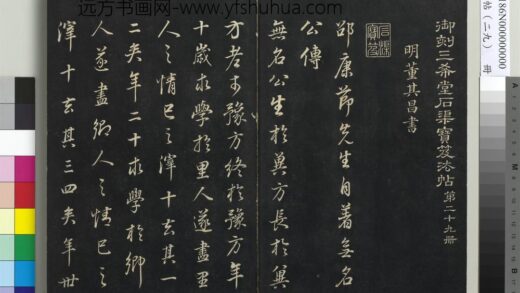 远方书画网-www.yfshuhua.com
御刻三希堂石渠寶笈法帖 第二十九冊
明董其昌書
石渠寶笈
邵康節先生自著無名
公傳
無名公生於冀方長於冀
方老于豫方終於豫方年
十歲求學於里人遂盡里
人之情己之滓十去其一
二矣年二十求學於鄉
人遂盡鄉人之情己之
滓十去其三四矣年卅
帖(二九) 冊
186N000000000